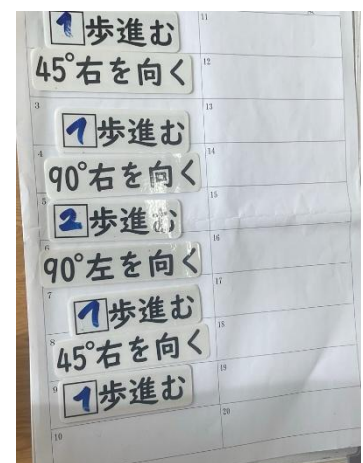 1歩進む
45°右を向く
1歩進む
90°右を向く
2歩進む
90°左を向く
1歩進む
45°右を向く
1歩進む
3
4
5
6
7
8
9
10
11
12
13
14
15
16
17
18
19
20